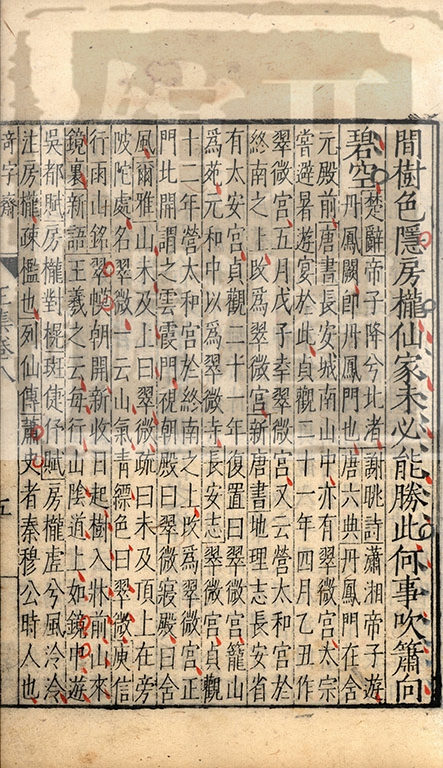 間樹色隱房櫳仙家未必能勝此何事吹簫向
碧空楚辭帝子降兮北者謝朓詩瀟湘帝子遊
丹鳳闕即丹鳳門也唐六典丹鳳門在含
元殿前唐書長安城南山中亦有翠微宮太宗
嘗避暑遊宴於此貞觀二十一年四月乙丑作
翠微宮五月戊子幸翠微宮又云營太和宮於
終南之上改為翠微宮新唐書地理志長安省
有太安宮貞觀二十一年復置曰翠微宮籠山
為苑元和中以為翠微寺長安志翠微宮貞觀
十二年營太和宮於終南之上改為翠微宮正
門北開謂之雲霞門視朝殿曰翠微寢殿曰含
風爾雅山未及上曰翠微疏曰未及頂上在旁
陂陀處名翠微一云山氣青縹色曰翠微庾信
行雨山銘翠幔朝開新收日起樹入牀前山來
鏡裏新語王羲之云每行山陰道上如鏡中遊
吳都賦房櫳對榥班倢伃賦房櫳虛兮風泠泠
注房櫳疎檻也列仙傳蕭史者秦穆公時人也
奇字齋
五